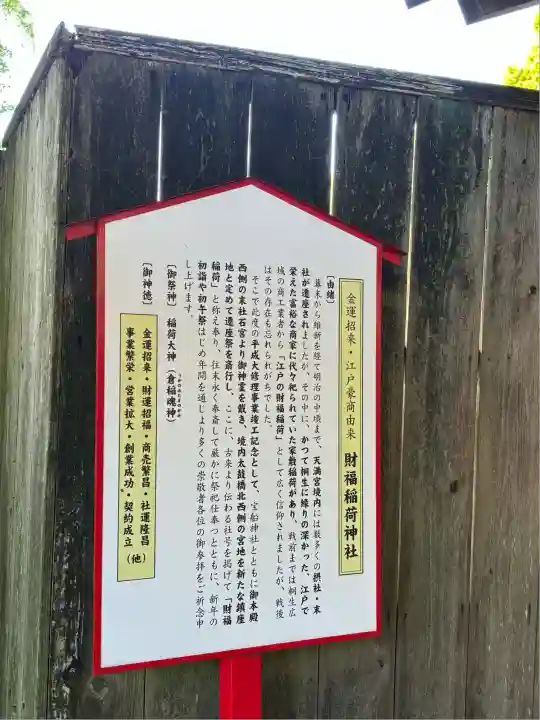 金運招来・江戸豪商由来 財福稲荷神社
〔由緒〕
幕末から維新を経て明治の中頃まで、天満宮境内には数多くの摂社・末
社が遷座されましたが、その中に、かつて桐生に縁りの深かった、江戸で
栄えた富裕な商家に代々祀られていた家敷稲荷があり、戦前までは桐生広
域の商工業者から「江戸の財福稲荷」として広く信仰されましたが、戦後
はその存在も忘れられがちでした。
そこで此度の平成大修理事業竣工記念として、宝船神社とともに御本殿
西側の末社石宮より御神霊を戴き、境内太鼓橋北西側の宮地を新たな鎮座
地と定めて遷座祭を斎行し、ここに、古来より伝わる社号を掲げて「財福
稲荷」と称え奉り、往末永く奉斎して厳かに祭祀仕奉つとともに、新年の
初詣や初午祭はじめ年間を通じより多くの崇敬者各位の御参拝をご祈念申
し上げます。
〔御祭神〕 稲荷大神（倉稲魂神）
〔御神徳〕
金運招来・財運招福・商売繁昌・社運隆昌
事業繁栄・営業拡大・創業成功・契約成立（他）